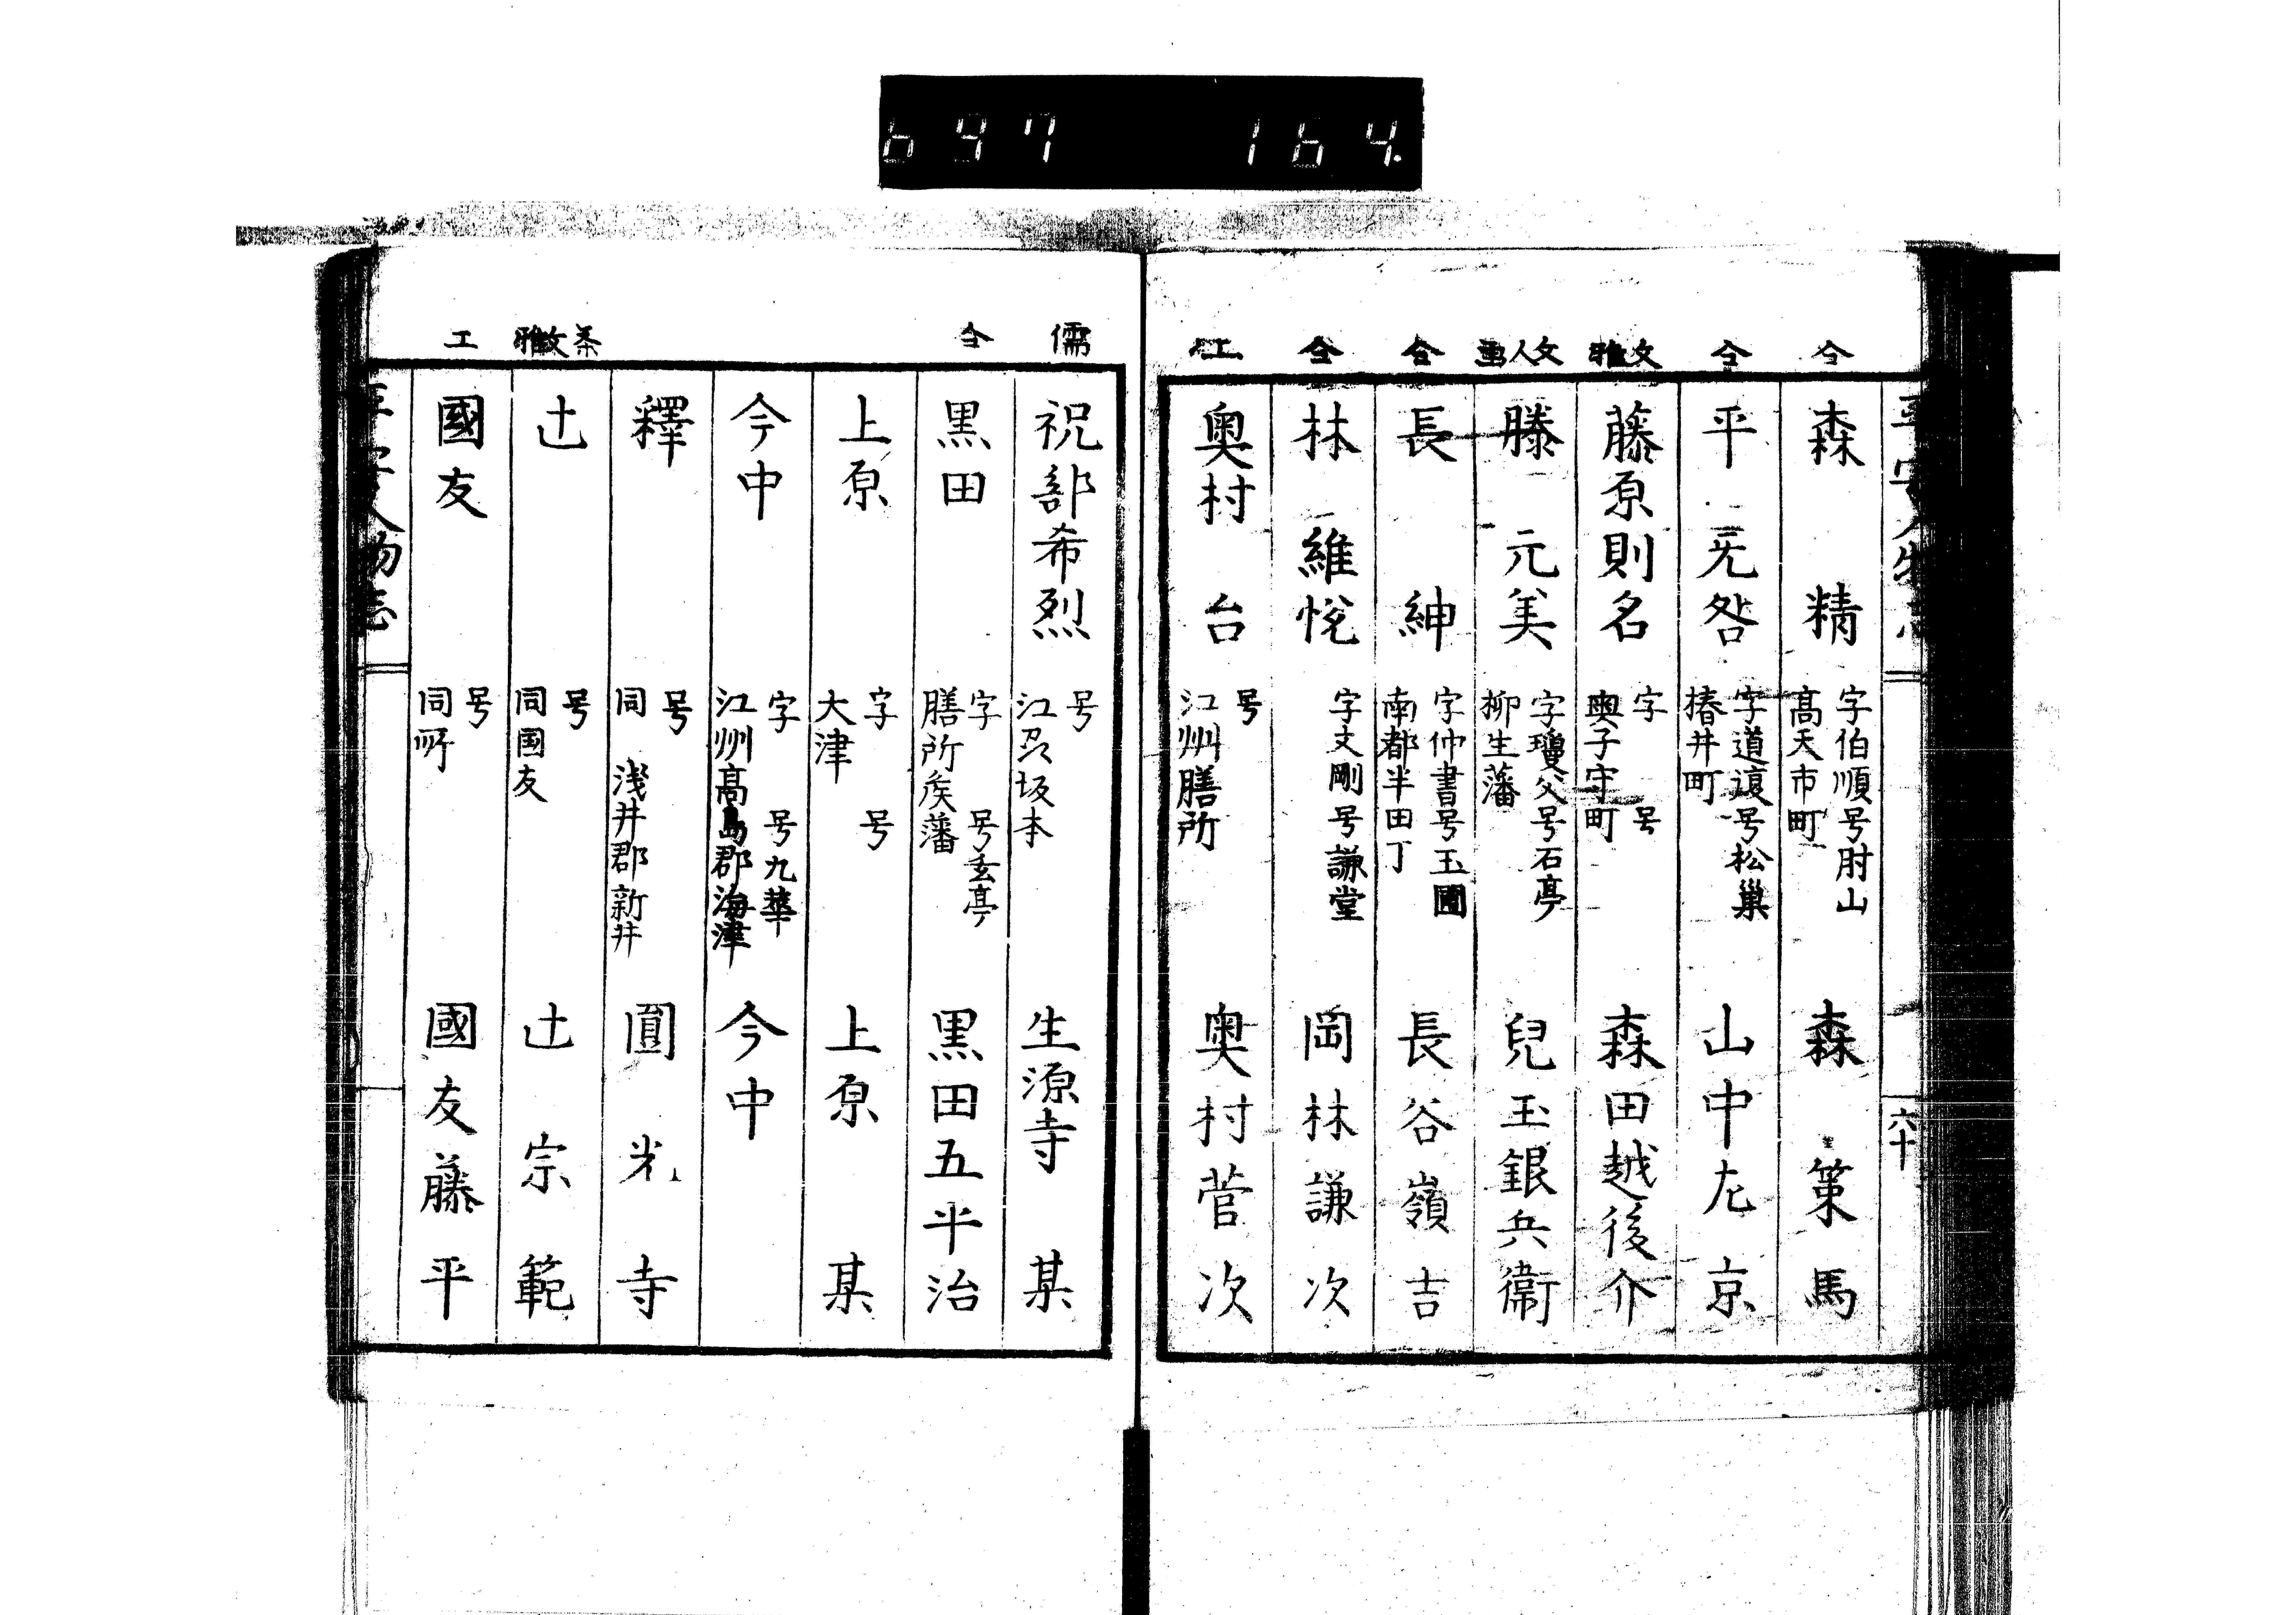 697 164.
平安人物志
六十
仝
森 精
字伯順号肘山
高天市町
森 策馬
仝
平无咎
字道遠号松巣
椿井町
山中左京
文雅
藤原則名
字 号
奥子守町
森田越後介
文人画
滕 元美
字瓊父号石亭
柳生藩
兒玉銀兵衞
仝
長 紳
字仲書号玉圃
南都半田丁
長谷嶺吉
仝
林 維悅
字文剛号謙堂
岡林謙次
工
奥村 台
号
江州膳所
奥村菅次
儒
祝部希烈
号
江州坂本
生源寺 某
仝
黒田
字 号玄亭
膳所矦藩
黒田五平治
上原
字 号
大津
上原 某
今中
字 号九華
江州高島郡海津
今中
釋
号
同 浅井郡新井
圓光寺
茶文雅
辻
号
同国友
辻宗範
工
國友
号
同所
國友藤平
平安人物志